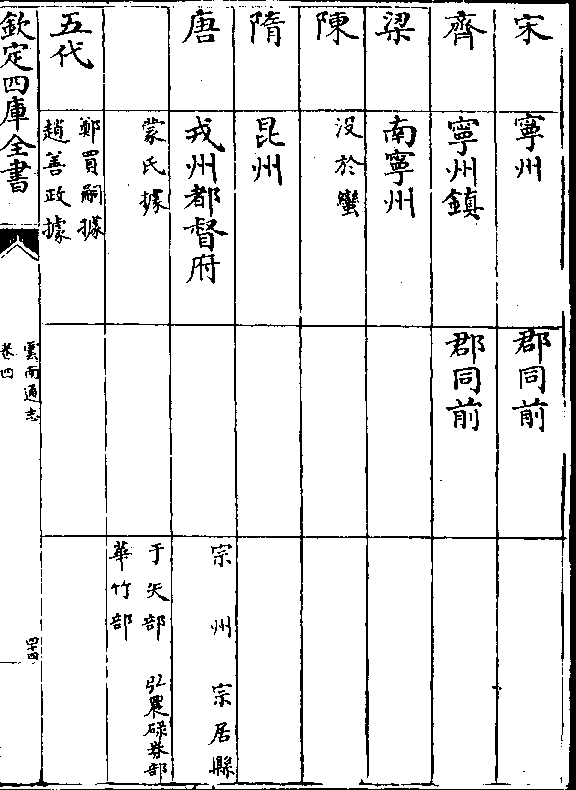 宋
寧州
郡同前
齊
寧州鎮
郡同前
梁
南寧州
陳
没於蠻
隋
昆州
唐
戎州都督府
宗州 宗居縣
蒙氏據
于矢部 弘農碌券部
華竹部
五代
鄭買嗣據
趙善政據
欽定四庫全書
雲南通志
卷四
四十四